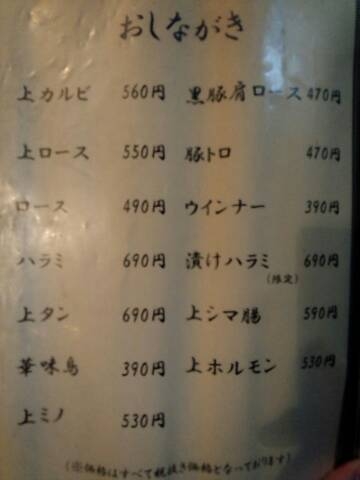 おしながき
上カルビ 560円 黒豚肩ロース 470円
上ロース 550円 豚トロ 470円
ロース 490円 ウインナー 390円
ハラミ 690円 漬けハラミ 690円
(限定)
上タン 690円 上シマ腸 590円
華味鳥 390円 上ホルモン 530円
上ミノ 530円
(※価格はすべて税抜き価格となっております)